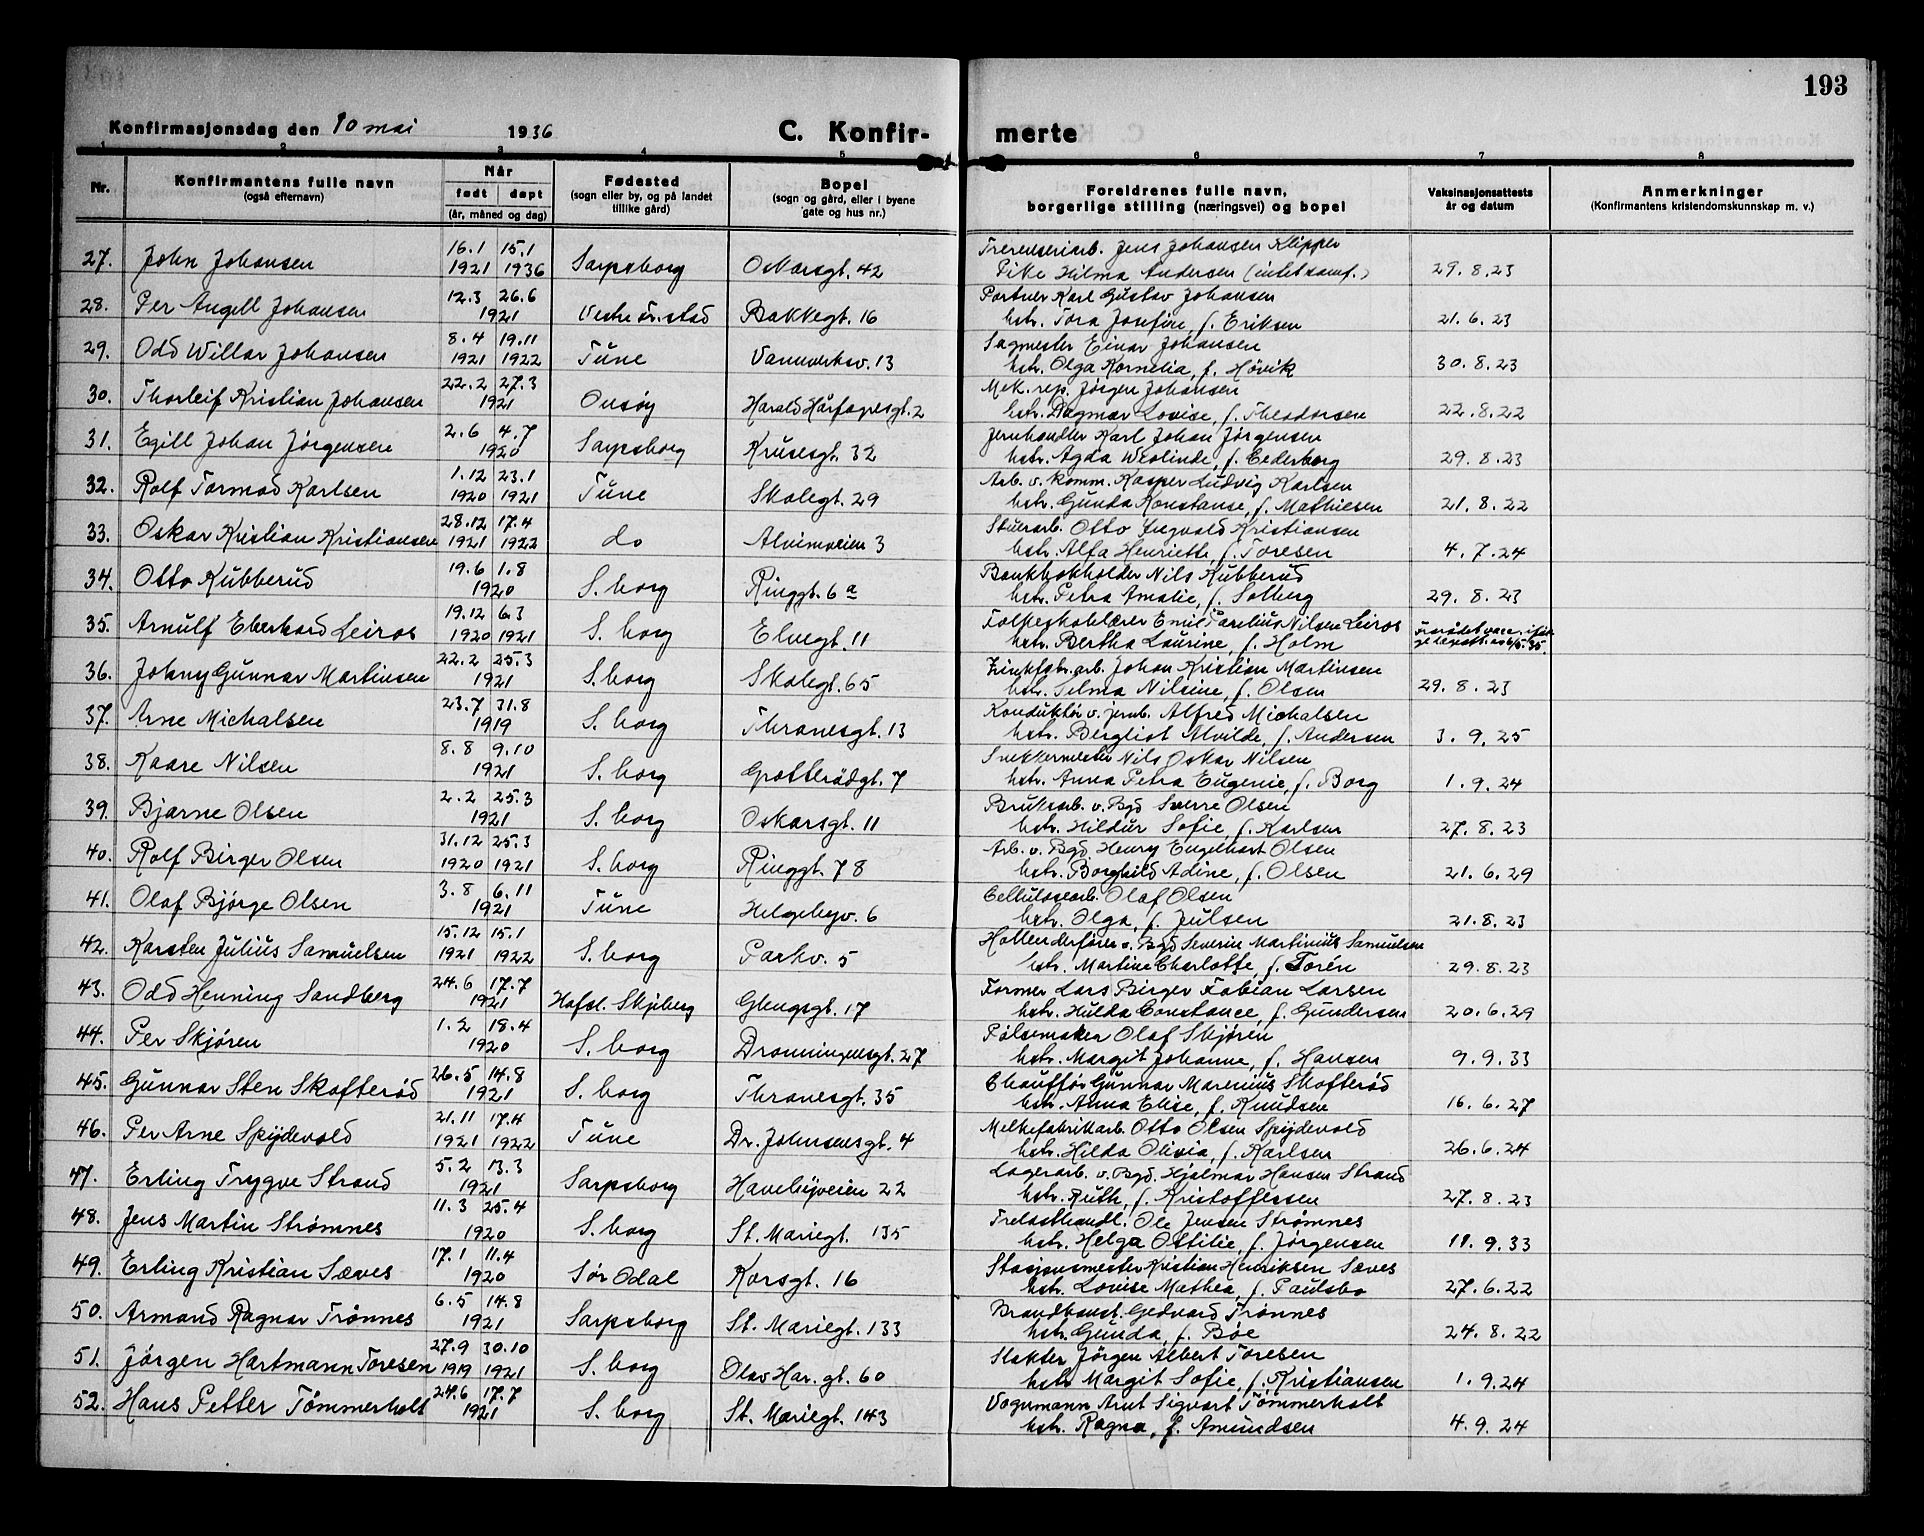 193
Konfirmasjonsdag den 10 mai 1936 C. Konfir- merte
1 2 3 4 5 6 7 8
Nr. Konfirmantens fulle navn (også efternavn) Når født døpt (år, måned og dag) Fødested (sogn eller by, og på landet tillike gård) Bopel (sogn og gård, eller i byene gate og hus nr.) Foreldrenes fulle navn, borgerlige stilling (næringsvei) og bopel Vaksinasjonsattests år og datum Anmerkninger (Konfirmantens kristendomskunnskap m. v.)
27. John Johansen 16.1 1921 15.1 1936 Sarpsborg Oskarsgt. 42 Jens Johansen Klipper
Pike Hilma Andersen (intet samf.) 29.8.23
28. Per Angell Johansen 12.3 26.6 1921 Vestre Fr.stad Bakkegt. 16 Portner Karl Gustav Johansen
hstr. Tora Josefine, f. Eriksen 21.6.23
29. Odd Willar Johansen 8.4 1921 19.11 1922 Tune Vannverksv. 13 Sagmester Einar Johansen
hstr. Olga Kornelia, f. Høvik 30.8.23
30. Thorleif Kristian Johansen 22.2 27.3 1921 Onsøy Harald Hårfagresgt. 2 Mek. rep. Jörgen Johansen
hstr. Dagmar Lovise, f. Theodorsen 22.8.22
31. Egill Johan Jörgensen 2.6 4.7 1920 Sarpsborg Krusesgt. 32 Jernhandler Karl Johan Jørgensen
hstr. Agda Weolinde, f. Cederborg 29.8.23
32. Rolf Tormod Karlsen 1.12 1920 23.1 1921 Tune Skolegt. 29 Arb. v. Komm. Kasper Ludvig Karlsen
hstr. Gunda Konstanse, f. Mathiesen 21.8.22
33. Oskar Kristian Kristiansen 28.12 1921 17.4 1922 do Alvimveien 3 Stuerarb. Otto Ingvald Kristiansen
hstr. Alfa Henriette, f. Toresen 4.7.24
34. Otto Kubberud 19.6 1.8 1920 S.borg Ringgt. 6 a Bankbokholder Nils Kubberud
hstr. Petra Amalie, f. Solberg 29.8.23
35. Arnulf Eberhard Leiros 19.12 1920 6.3 1921 S.borg Elvegt. 11 Folkeskolelærer Emil Parelius Nilsen Leiros
hstr. Bertha Laurine, f. Holm
36. Johny Gunnar Martinsen 22.2 25.3 1921 S.borg Skolegt. 65 Zinkfabr.arb. Johan Kristian Martinsen
hstr. Selma Nilsine, f. Olsen 29.8.23
37. Arne Michalsen 23.7 31.8 1919 S.borg Thranesgt. 13 Konduktör v. jernb. Alfred Michalsen
hstr. Bergliot Alvilde, f. Andersen 3.9.25
38. Kaare Nilsen 8.8 9.10 1921 S.borg Grotterødgt. 7 Snekkermester Nils Oskar Nilsen
hstr. Anna Petra Eugenie, f. Borg 1.9.24
39. Bjarne Olsen 2.2 25.3 1921 S.borg Oskarsgt. 11 Bruksarb. v. Bgd Sverre Olsen
hstr. Hildur Sofie, f. Karlsen 27.8.23
40. Rolf Birger Olsen 31.12 1920 25.3 1921 S.borg Ringgt. 78 Arb. v. Bgd Henry Engelhart Olsen
hstr. Borghild Adine, f. Olsen 21.6.29
41. Olaf Bjørge Olsen 3.8 6.11 1921 Tune Helgebyv. 6 Cellulosearb. Olaf Olsen
hstr. Olga, f. Julsen 21.8.23
42. Karsten Julius Samuelsen 15.12 1921 15.1 1922 S.borg Parkv. 5 Hollenderfører v. Bgd Severin Martinius Samuelsen
hstr. Martine Charlotte, f. Torén 29.8.23
43. Odd Henning Sandberg 24.6 17.7 1921 Hafsl. Skjeberg Glengsgt. 17 Former Lars Birger Fabian Larsen
hstr. Hulda Constance, f. Gundersen 20.6.29
44. Per Skjøren 1.2 18.4 1920 S.borg Dronningensgt. 27 Pölsemaker Olaf Skjøren
hstr. Margit Johanne, f. Hansen 9.9.33
45. Gunnar Sten Skofterød 26.5 14.8 1921 S.borg Thranesgt. 35 Chauffør Gunnar Marenius Skofterød
hstr. Anna Elise, f. Knudsen 16.6.27
46. Per Arne Spydevold 21.11 1921 17.4 1922 Tune Dr. Johnsensgt. 4 Melkefabrikarb. Otto Olsen Spydevold
hstr. Hilda Olivia, f. Karlsen 26.6.24
47. Erling Trygve Strand 5.2 13.3 1921 Sarpsborg Hannebyveien 22 Lagerarb. v. Bgd. Hjalmar Hansen Strand
hstr. Ruth, f. Kristoffersen 27.8.23
48. Jens Martin Strømnes 11.3 25.4 1920 S.borg St. Mariegt. 135 Trelasthandl. Ole Jensen Strømnes
hstr. Helga Ottilie, f. Jørgensen 11.9.33
49. Erling Kristian Sæves 17.1 11.4 1920 Sør Odal Korsgt. 16 Stasjonsmester Kristian Henriksen Sæves
hstr. Lovise Mathea, f. Paulsbo 27.6.22
50. Armand Ragnar Trønnes 6.5 14.8 1921 Sarpsborg St. Mariegt. 133 Brandkonst. Gedvard Trønnes
hstr. Gunda, f. Bøe 24.8.22
51. Jørgen Hartmann Toresen 27.9 1919 30.10 1921 S.borg Olav Har. gt. 60 Slakter Jörgen Albert Toresen
hstr. Margit Sofie, f. Kristiansen 1.9.24
52. Hans Petter Tømmerholt 24.6 17.7 1921 S.borg St. Mariegt. 143 Vognmann Arnt Sigvart Tömmerholt
hstr. Ragna, f. Amundsen 4.9.24